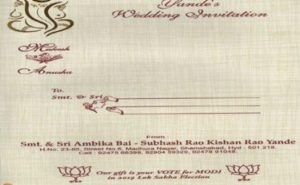 Yande's
Wedding Invitation
Mukesh
Anusha
To.
Smt. & Sri
From
Smt. & Sri Ambika Bai - Subhash Rao Kishan Rao Yande
H.No. 23-65, Street No.5, Madhura Nagar, Shamshabad, Hyd - 501 218.
Our gift is your VOTE for MODI
in 2019 Lok Sabha Election